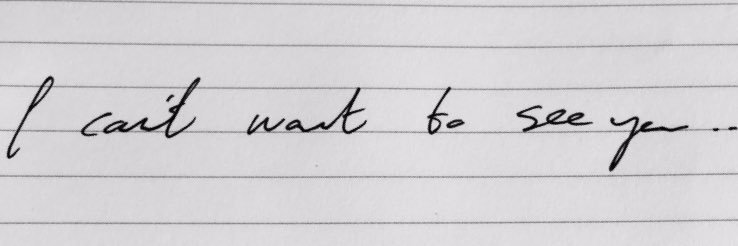 I can't want to see you ..